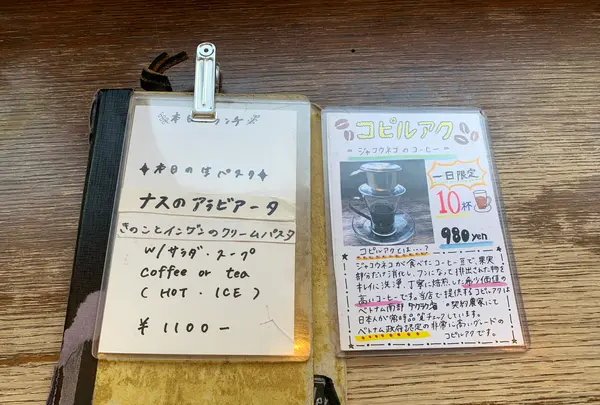 本日のランチ
本日の生パスタ
ナスのアラビアータ
きのことインゲンのクリームパスタ
W/サラダ・スープ
coffee or tea
( HOT ・ ICE )
¥ 1100-
コピルアク
ジャコウネコのコーヒー
一日限定
10杯
980yen
コピルアクとは…?
ジャコウネコが食べたコーヒー豆で、果実
部分だけ消化し、フンになって排出された物を
キレイに洗浄、丁寧に焙煎した希少価値の
高いコーヒーです。当店で提供するコピルアクは
ベトナム南部 ダクラク省 の契約農家にて
日本人が常時品質チェックしています。
ベトナム政府認定の非常に高いグレードの
コピルアクです。